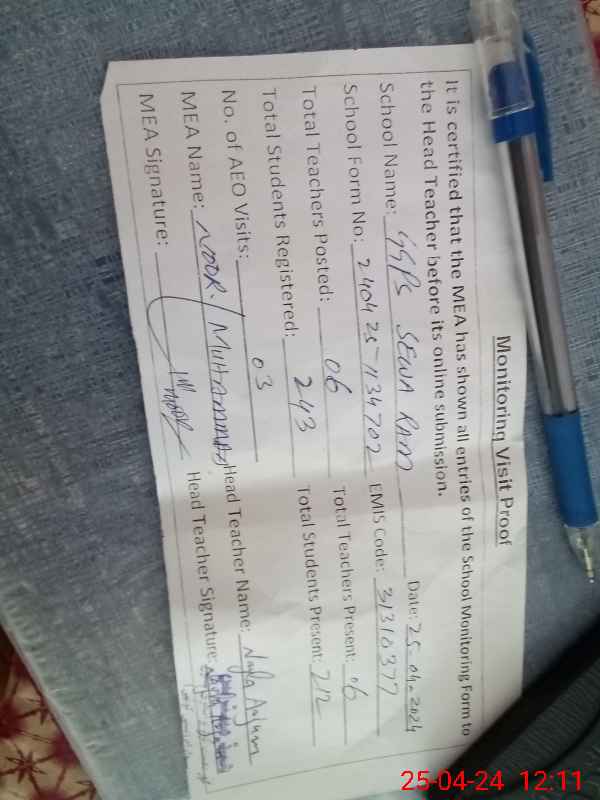 Monitoring Visit Proof
It is certified that the MEA has shown all entries of the School Monitoring Form to
the Head Teacher before its online submission.
School Name: GGPS SEWA RAM Date: 25-04-2024
School Form No: 240425-1134702 EMIS Code: 31310377
Total Teachers Posted: 06 Total Teachers Present: 06
Total Students Registered: 243 Total Students Present: 212
No. of AEO Visits: 03
MEA Name: NOOR Muhammad Head Teacher Name: Nayla Anjum
MEA Signature: Head Teacher Signature:
25-04-24 12:11